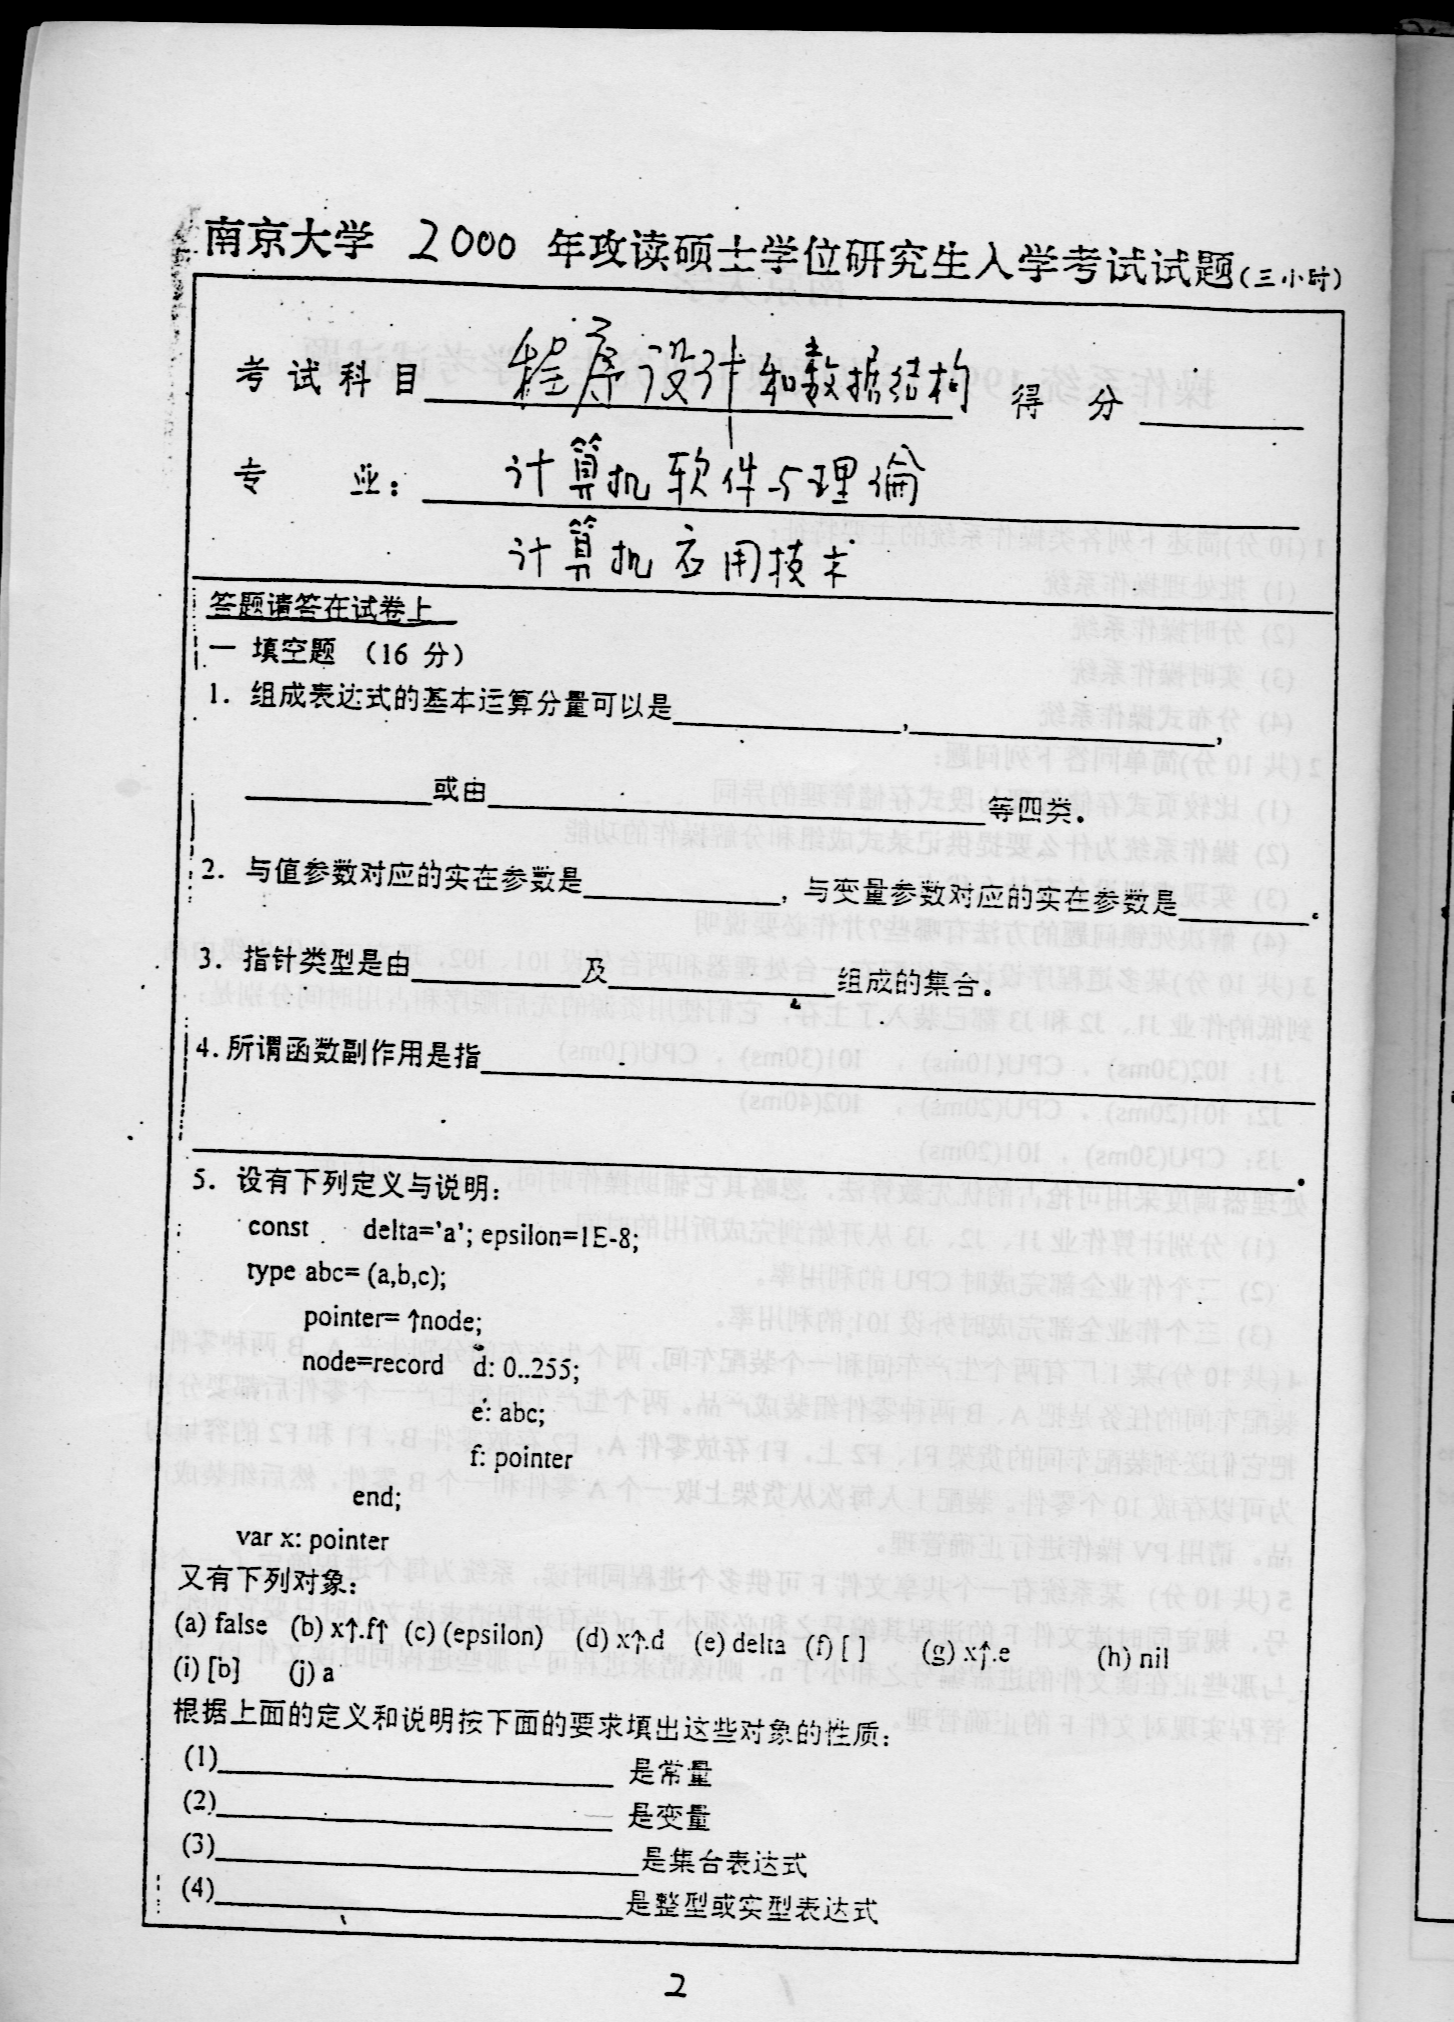 南京大学 2000 年攻读硕士学位研究生入学考试试题(三小时)
考试科目 程序设计和数据结构 得 分
专 业: 计算机软件与理倫
计算机应用技术
答题请答在试卷上
一 填空题 (16 分)
1. 组成表达式的基本运算分量可以是____,____,
____或由____等四类。
2. 与值参数对应的实在参数是____, 与变量参数对应的实在参数是____。
3. 指针类型是由____及____组成的集合。
4. 所谓函数副作用是指____
____。
5. 设有下列定义与说明:
const delta='a'; epsilon=1E-8;
type abc= (a,b,c);
pointer= ↑node;
node=record d: 0..255;
e: abc;
f: pointer
end;
var x: pointer
又有下列对象:
(a) false (b) x↑.f↑ (c) (epsilon) (d) x↑.d (e) delta (f) [ ] (g) x↑.e (h) nil
(i) [b] (j) a
根据上面的定义和说明按下面的要求填出这些对象的性质:
(1)____ 是常量
(2)____ 是变量
(3)____是集合表达式
(4)____是整型或实型表达式
2